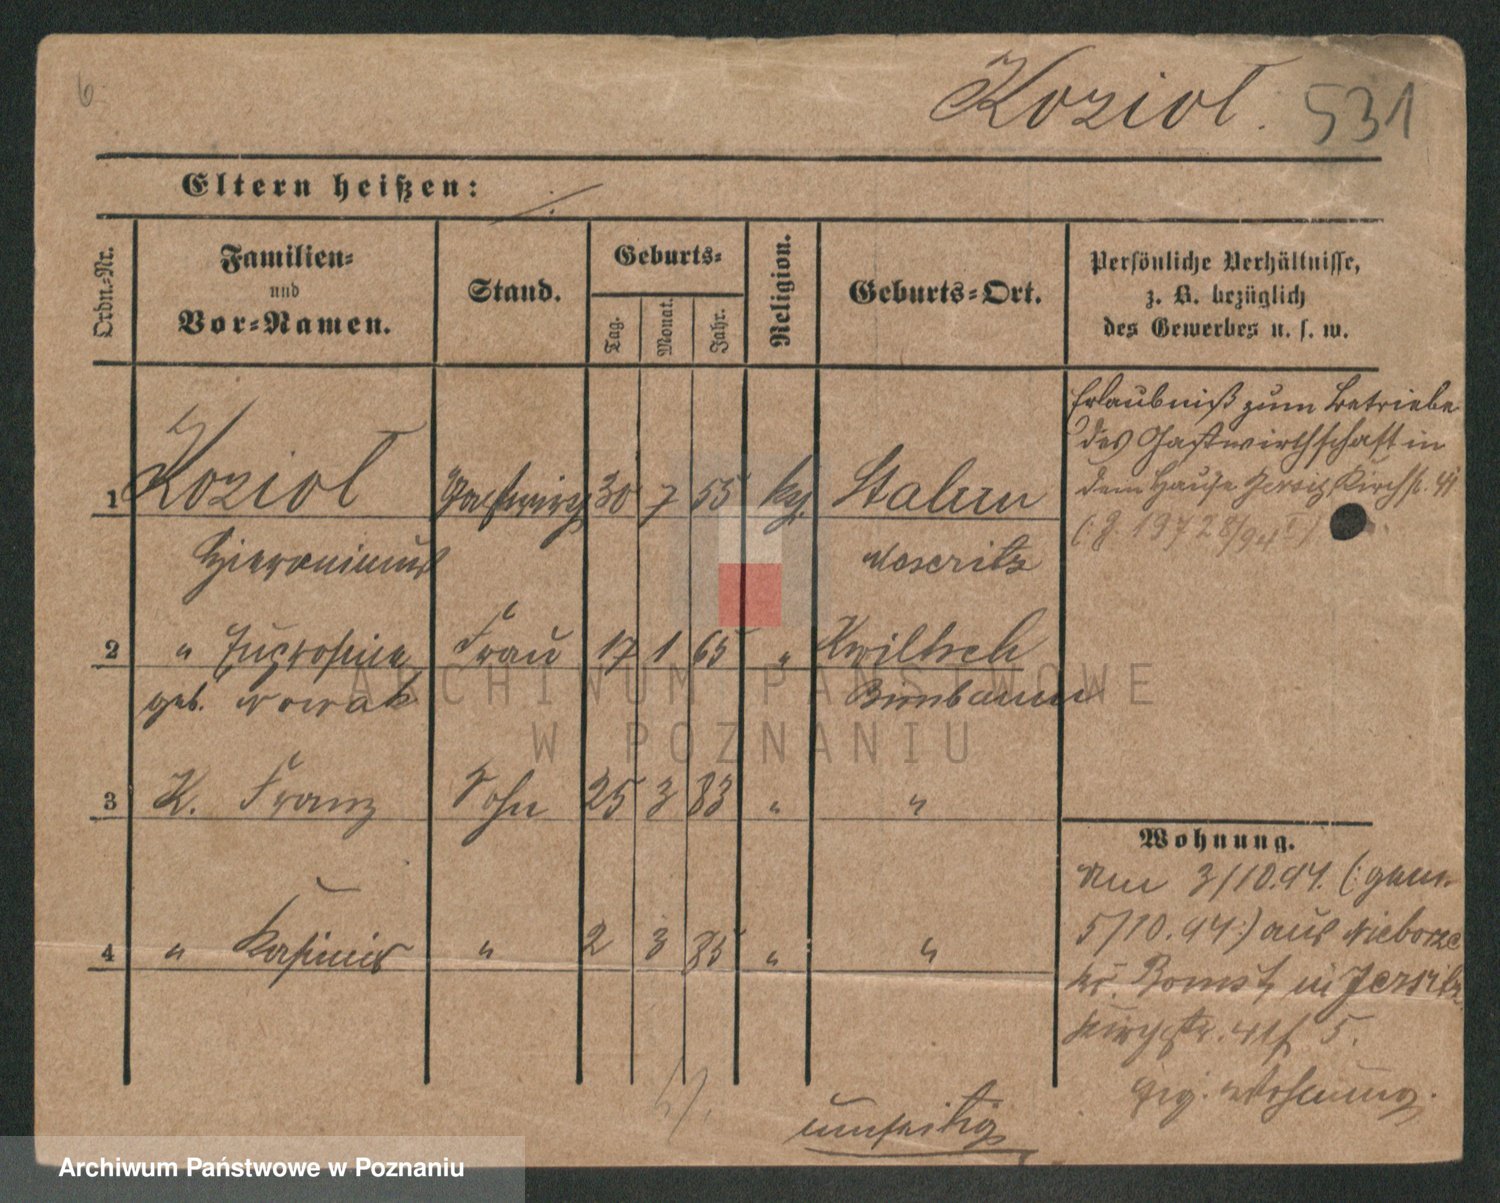 6.
Koziol. 531
Eltern heißen:
Ordn.-Nr.
Familien-
und
Vor-Namen.
Stand.
Geburts-
Tag.
Monat.
Jahr.
Religion.
Geburts-Ort.
Persönliche Verhältnisse,
z. B. bezüglich
des Gewerbes u. s. w.
1 Koziol Gastwirth 30 7 55 kg. Stalun
Hieronimus Meseritz
2 " Eufrosine Frau 17 1 65 " Kwiltsch
geb. Nowak Birnbaum
3 K. Franz Sohn 25 3 83 " "
4 " Kasimir " 2 3 85 " "
Erlaubniß zum Betriebe
des Gastwirthschaft in
dem Hause Jersitz Kirchst. 41
Wohnung.
Am 3/10.94. (:gem.
5/10.94:) aus Nieborze
Kr. Bomst, in Jersitz
Kirchstr. 41 5.
Wohnung.
umseitig
ARCHIWUM PAŃSTWOWE
W POZNANIU
Archiwum Państwowe w Poznaniu